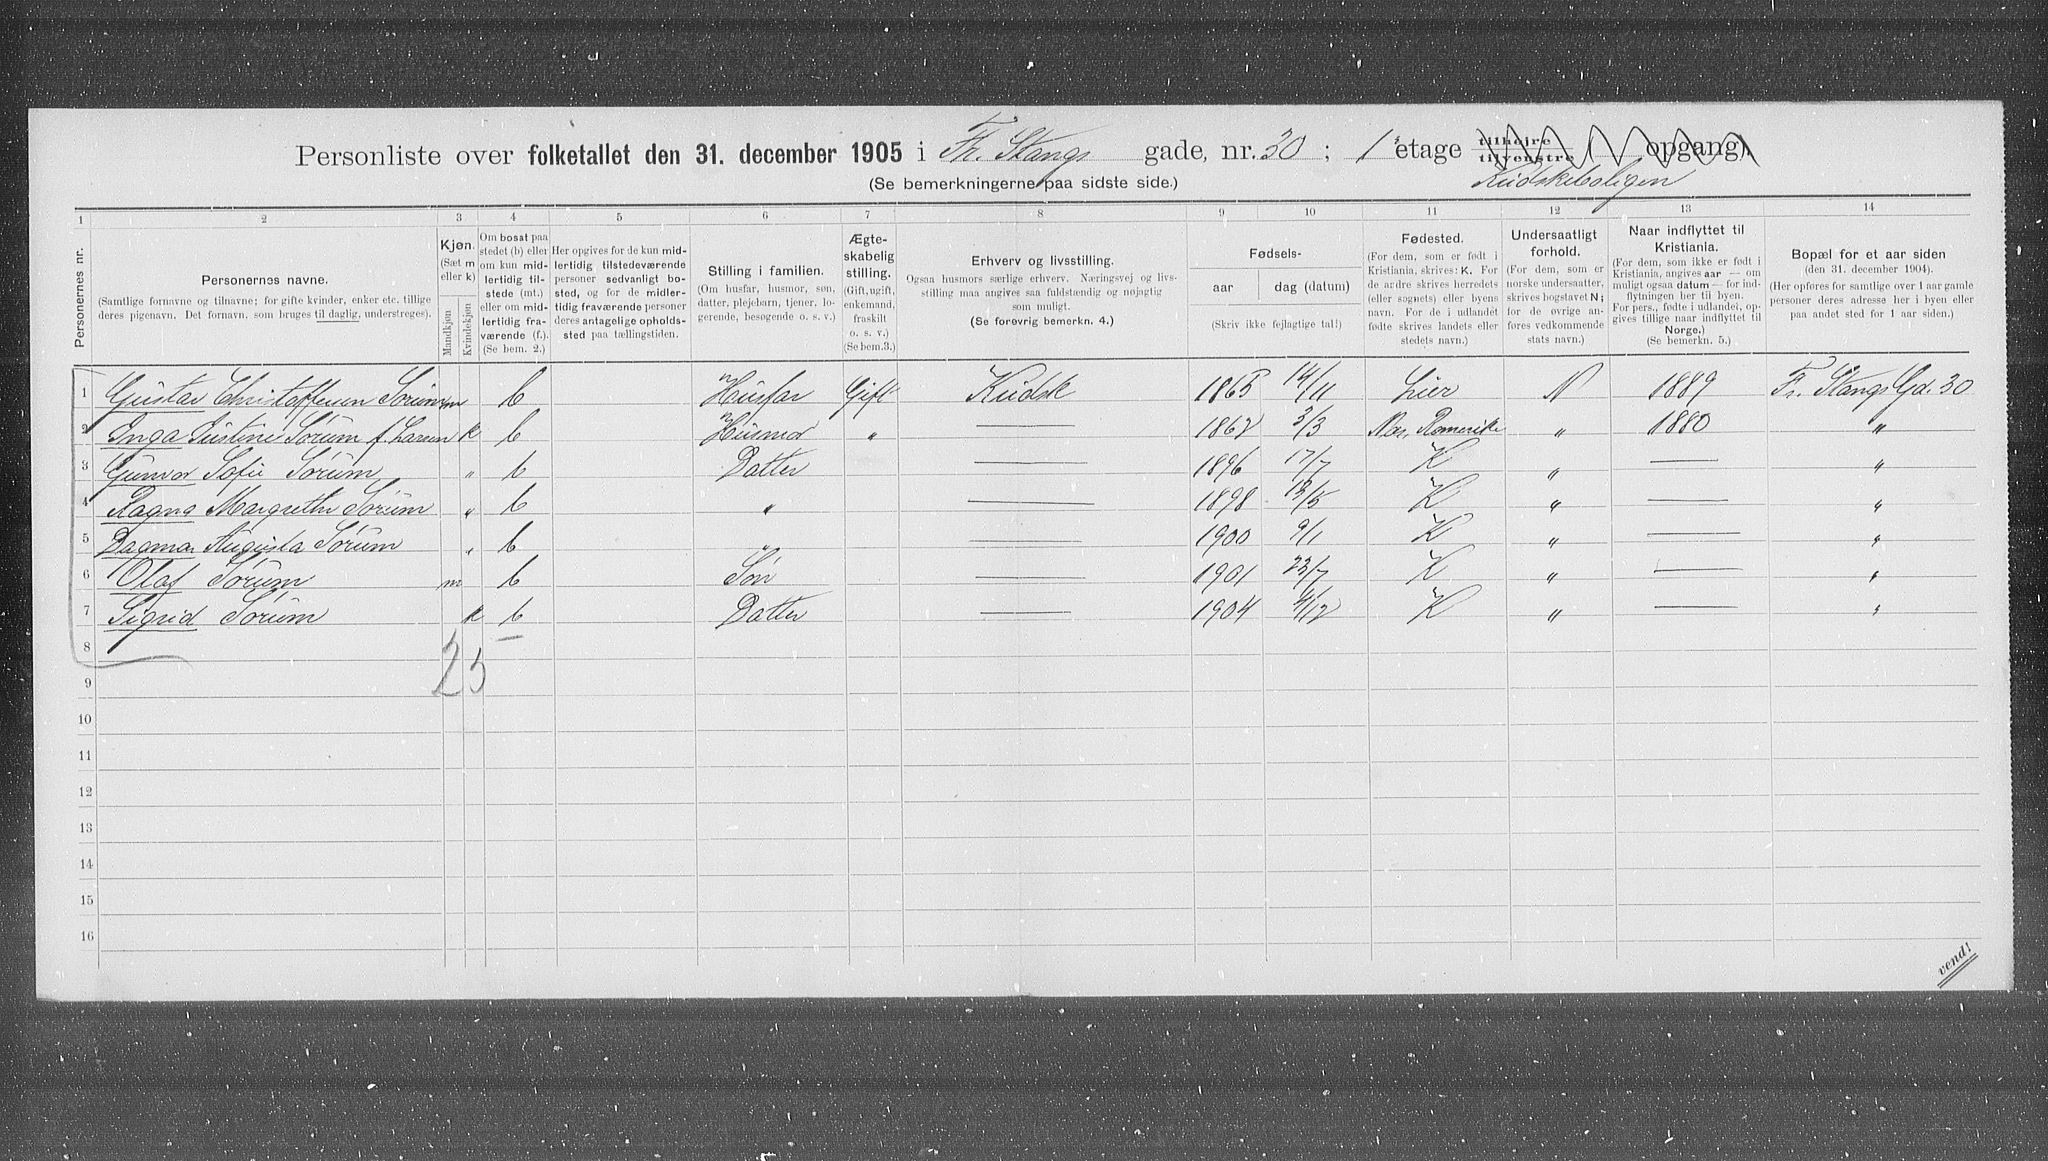 Personliste over folketallet den 31. december 1905 i Fr. Stangs gade, nr. 30 ; 1ste etage tilhøire tilvenstre ( opgang).
(Se bemerkningerne paa sidste side.) Kudskeboligen
1 2 3 4 5 6 7 8 9 10 11 12 13 14
Personernes nr.
Personernes navne.
(Samtlige fornavne og tilnavne; for gifte kvinder, enker etc. tillige
deres pigenavn. Det fornavn, som bruges til daglig, understreges).
Kjøn.
(Sæt m
eller k)
Mandkjøn
Kvindekjøn
Om bosat paa
stedet (b) eller
om kun mid-
lertidig til-
stede (mt.)
eller om mid-
lertidig fra-
værende (f.).
(Se bem. 2.)
Her opgives for de kun mid-
lertidig tilstedeværende
personer sedvanlig bo-
sted, og for de midler-
tidig fraværende personer
deres antagelige opholds-
sted paa tællingstiden.
Stilling i familien.
(Om husfar, husmor, søn,
datter, plejebarn, tjener, lo-
gerende, besøgende o. s. v.)
Ægte-
skabelig
stilling.
(Gift, ugift,
enkemand,
fraskilt
o. s. v.)
(Se bem.3.)
Erhverv og livsstilling.
Ogsaa husmors særlige erhverv. Næringsvej og livs-
stilling maa angives saa fuldstændig og nøjagtig
som muligt.
(Se forøvrig bemerkn. 4.)
Fødsels-
aar dag (datum)
(Skriv ikke fejlagtige tal!)
Fødested.
(For dem, som er født i
Kristiania, skrives: K. For
de andre skrives herredets
(eller sognets) eller byens
navn. For de i udlandet
fødte skrives landets eller
stedets navn.)
Undersaatligt
forhold.
(For dem, som er
norske undersaatter,
skrives bogstavet N;
for de øvrige an-
føres vedkommende
stats navn.)
Naar indflyttet til
Kristiania.
(For dem, som ikke er født i
Kristiania, angives aar — om
muligt ogsaa datum — for ind-
flytningen her til byen.
For pers., fødte i udlandet, op-
gives tillige naar indflyttet til
Norge.)
(Se bemerkn. 5.)
Bopæl for et aar siden
(den 31. december 1904).
(Her opføres for samtlige over 1 aar gamle
personer deres adresse her i byen eller
paa andet sted for 1 aar siden.)
1 Gustav Christoffersen Sørum m b Husfar Gift Kudsk 1865 14/11 Lier N 1889 Fr. Stangs Gd. 30
2 Inga Justine Sørum f. Larsen k b Husmor " — 1862 3/3 Nes, Romerike " 1880 "
3 Gunvor Sofie Sørum " b Datter — 1896 17/7 K " — "
4 Ragna Margrethe Sørum " b " — 1898 13/5 K " — "
5 Dagmar Augusta Sørum " b " — 1900 9/1 K " — "
6 Olaf Sørum m b Søn — 1901 23/7 K " — "
7 Sigrid Sørum k b Datter — 1904 4/12 K " — "
8
25
9
10
11
12
13
14
15
16
vend!